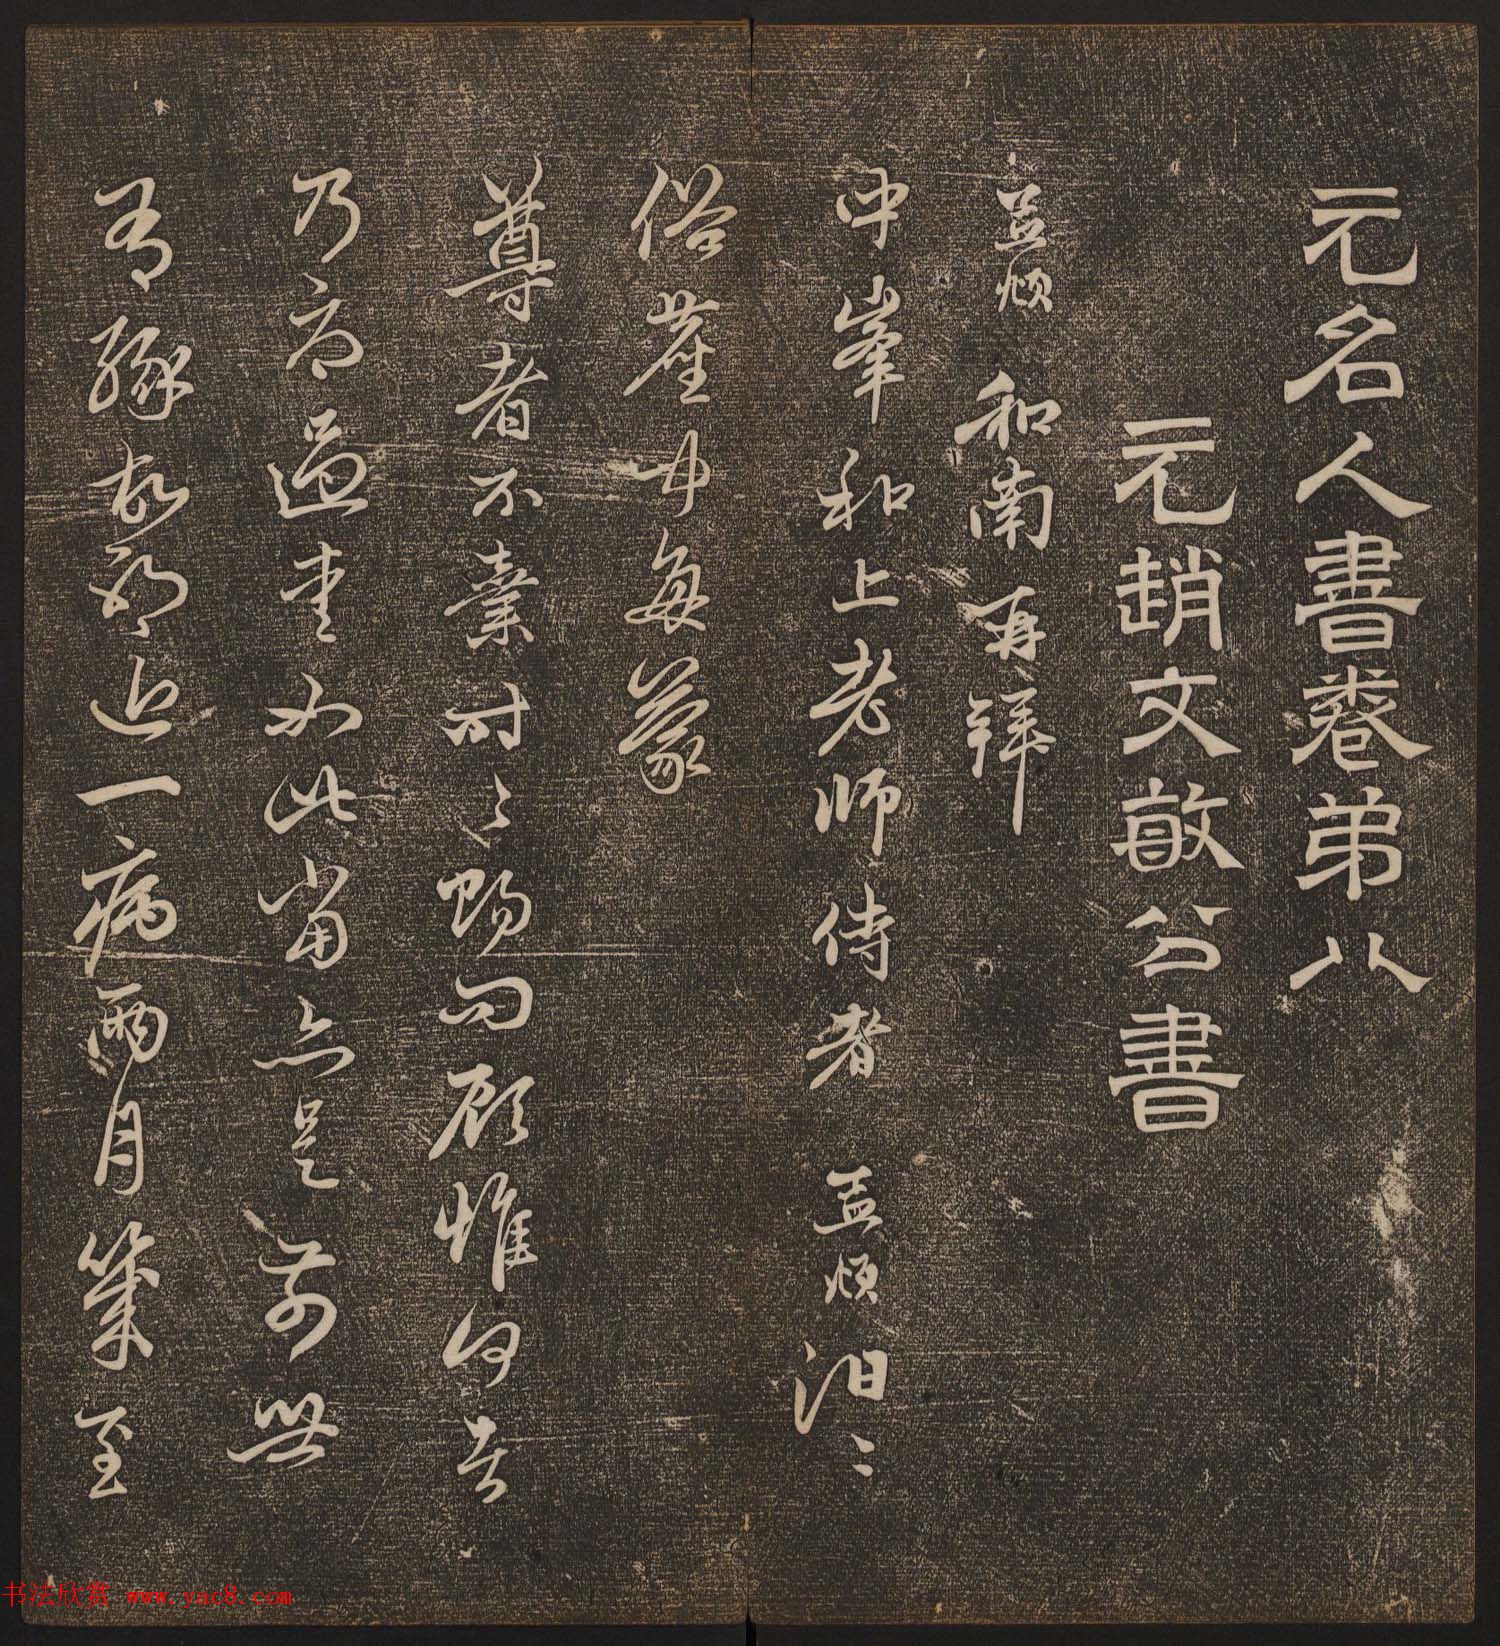 元名人書卷弟八
元趙文敏公書
孟頫 和南再拜
中峯和上老師侍者 孟頫汩〻
俗塵中每蒙
尊者不棄時〻賜問顧惟何者
乃辱過愛如此當亦是前世
有緣故耶近一病兩月幾至
书法欣赏 www.yac8.com